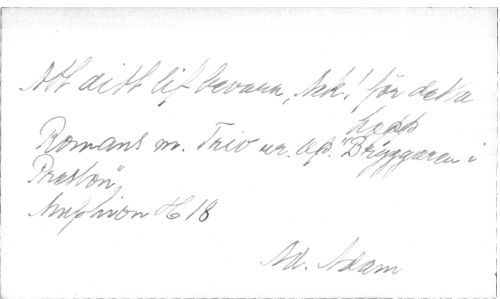 Att ditt lif bevara, Ack! för detta
hopp
Romans m. Trio ur. Op. "Bryggaren i
Preston"
Amphion H 18
Ad. Adam